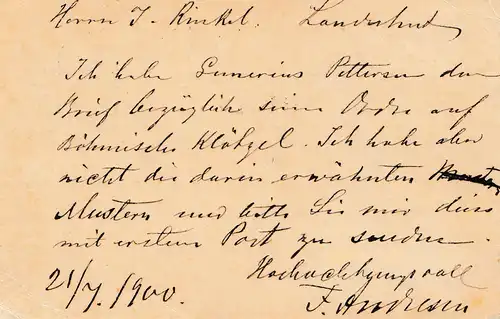 Herrn J. Rinkel. Landeshut
Ich habe Gunerius Pettersen den
Brief bezüglich seine Ordre auf
Böhmische Klötzel. Ich habe aber
nicht die darin erwähnten
Mustern und bitte Sie mir diese
mit erstem Post zu senden.
Hochachtungsvoll
21/7. 1900.
F. Andresen